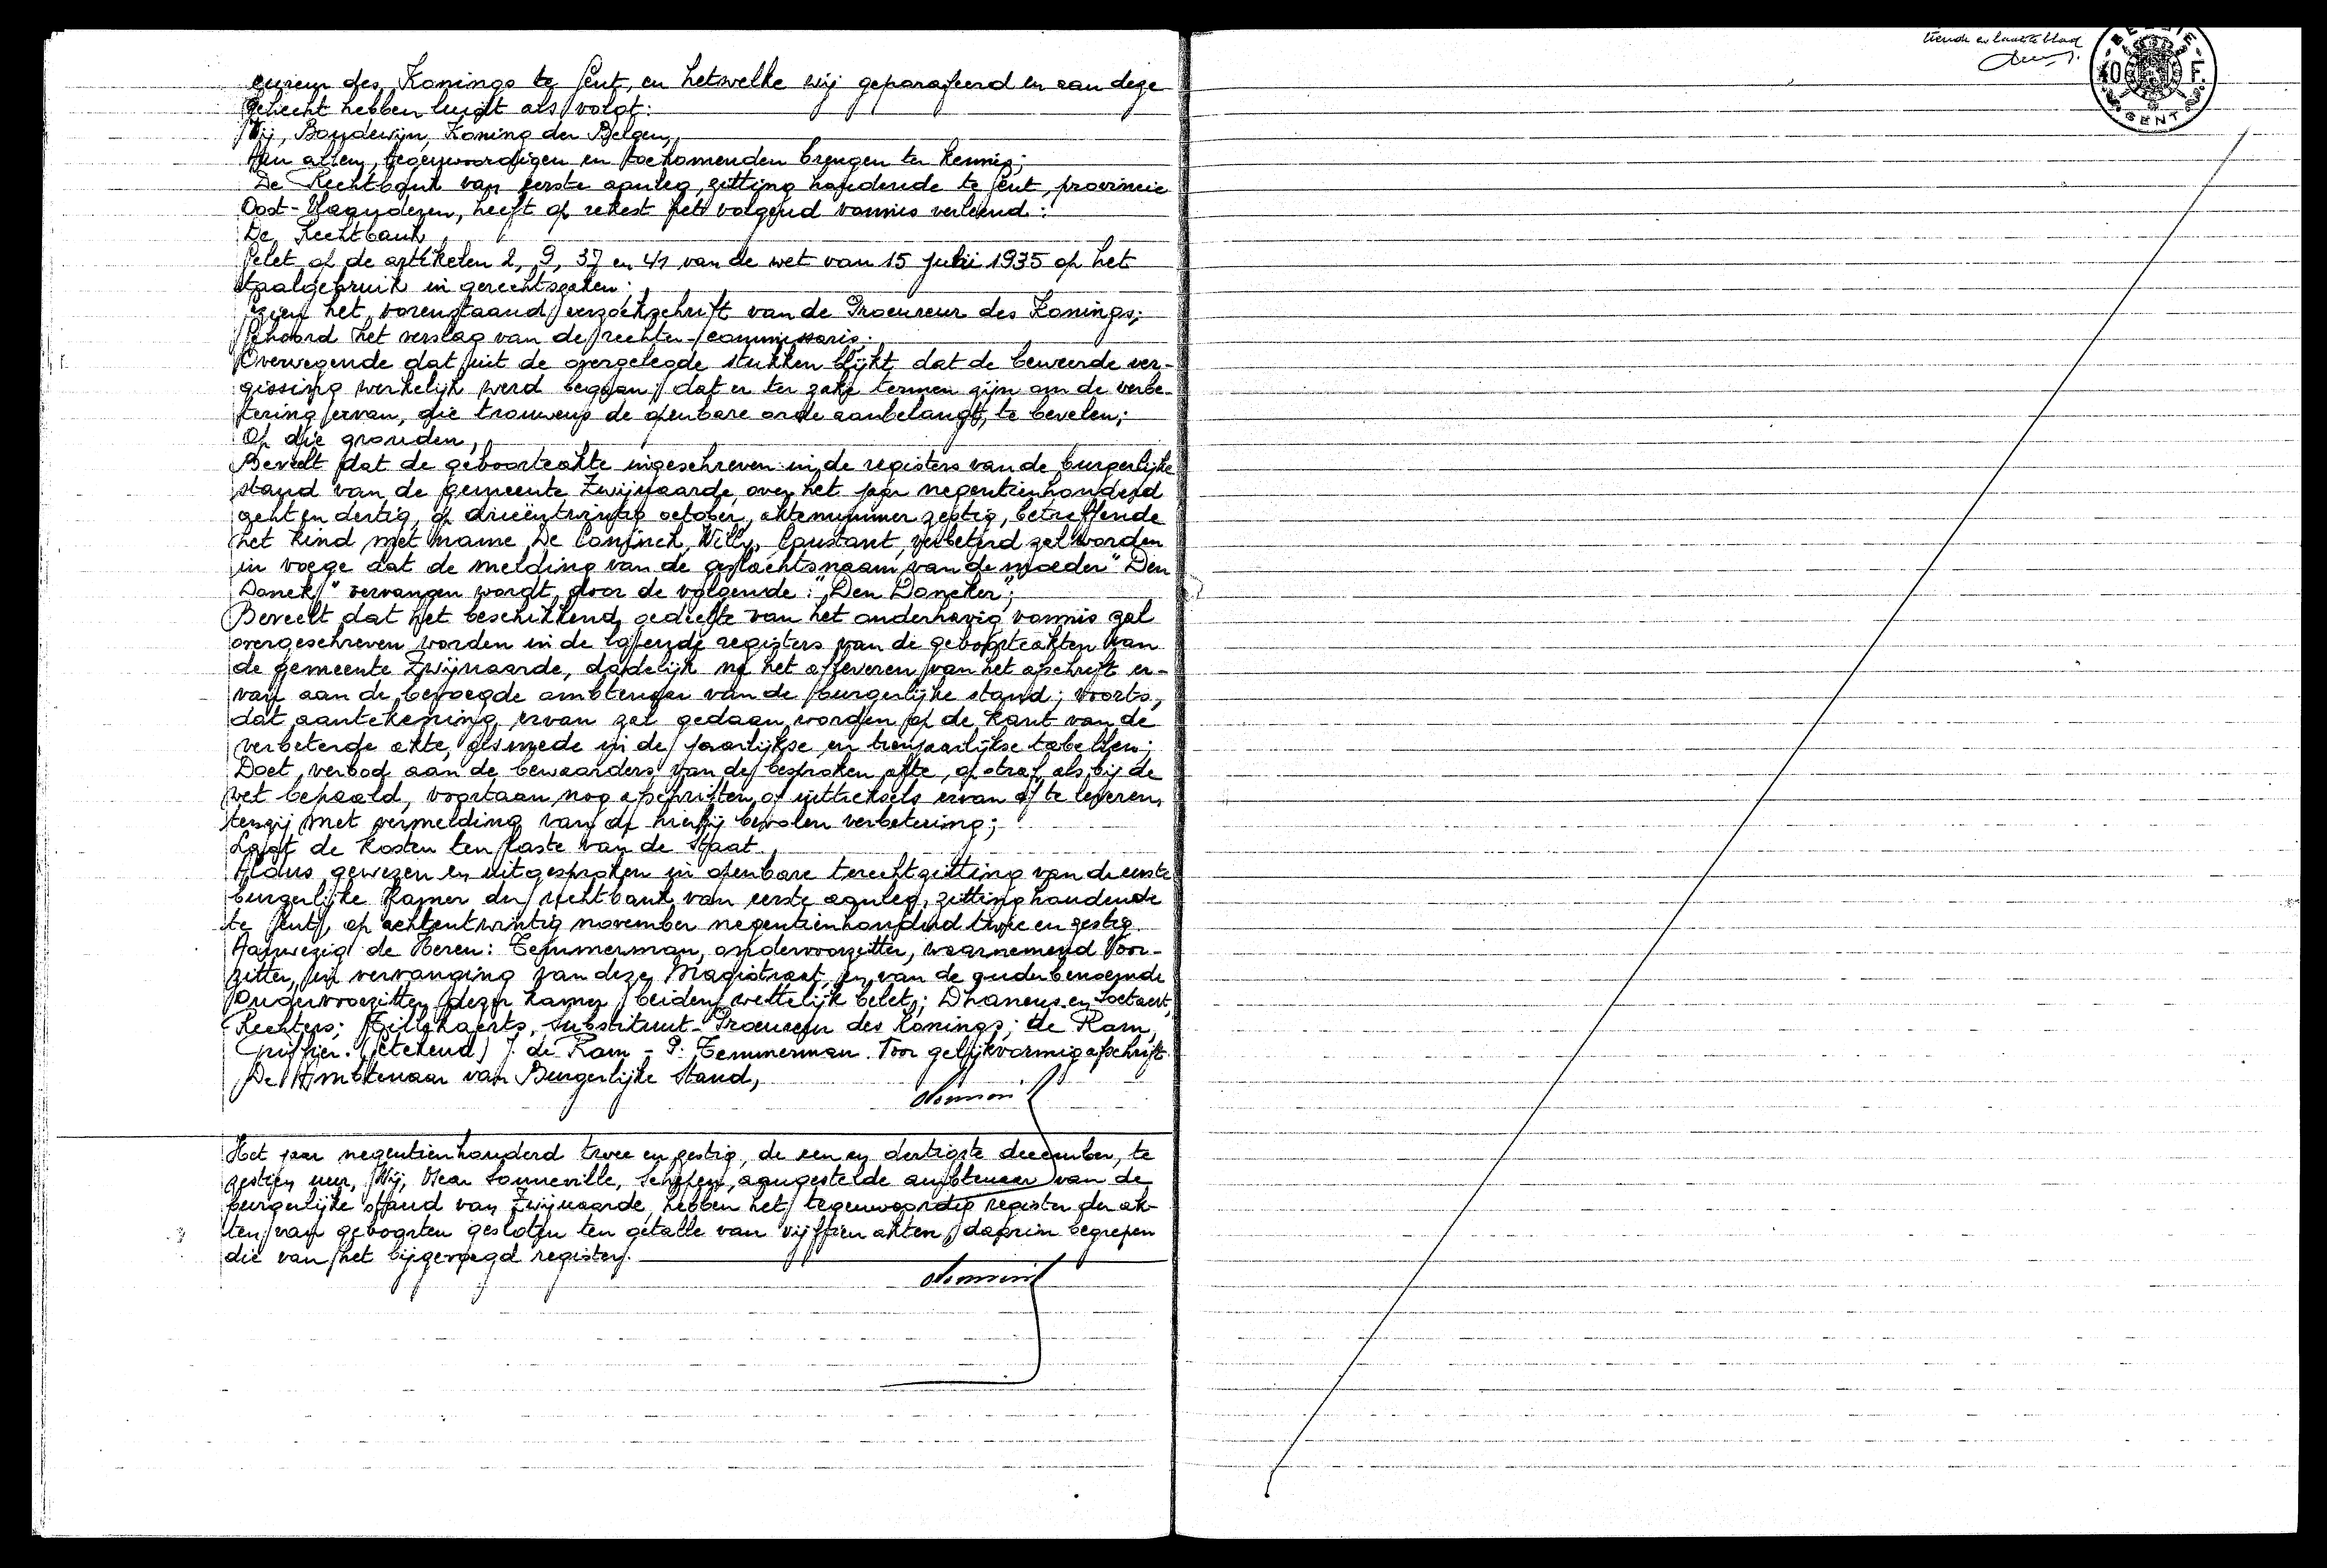 cureur des Konings te Gent, en hetwelke wij geparafeerd en aan deze
gehecht hebben luidt als volgt:
Wij, Boudewijn, Koning der Belgen,
Aan allen, tegenwoordigen en toekomenden brengen ter kennis;
De Rechtbank van eerste aanleg, zitting houdende te Gent, provincie
Oost-Vlaanderen, heeft op rekest het volgend vonnis verleend:
De Rechtbank,
Gelet op de artikelen 2, 9, 37 en 41 van de wet van 15 juni 1935 op het
taalgebruik in gerechtszaken:
Gezien het vorenstaand verzoekschrift van de Procureur des Konings;
Gehoord het verslag van de rechter-commissaris;
Overwegende dat uit de overgelegde stukken blijkt dat de beweerde ver-
gissing werkelijk werd begaan; dat er ter zake termen zijn om de verbe-
tering ervan, die trouwens de openbare orde aanbelangt, te bevelen;
Op die gronden,
Beveelt dat de geboorteakte ingeschreven in de registers van de burgerlijke
stand van de gemeente Zwijnaarde, over het jaar negentienhonderd
acht en dertig, op drieëntwintig october, aktenummer zestig, betreffende
het kind met name De Coninck, Willy, Constant, verbeterd zal worden
in voege dat de melding van de geslachtsnaam van de moeder "Den
Donck" vervangen wordt door de volgende: "Den Doncker";
Beveelt dat het beschikkend gedeelte van het onderhavig vonnis zal
overgeschreven worden in de lopende registers van de geboorteakten van
de gemeente Zwijnaarde, dadelijk na het afleveren van het afschrift er-
van aan de bevoegde ambtenaar van de burgerlijke stand; voorts,
dat aantekening ervan zal gedaan worden op de kant van de
verbeterde akte, alsmede in de jaarlijkse en tienjaarlijkse tabellen;
Doet verbod aan de bewaarders van de besproken akte, op straf als bij de
wet bepaald, voortaan nog afschriften of uittreksels ervan af te leveren,
tenzij met vermelding van de hierbij bevolen verbetering;
Legt de kosten ten laste van de Staat.
Aldus gewezen en uitgesproken in openbare terechtzitting van de eerste
burgerlijke Kamer der rechtbank van eerste aanleg, zitting houdende
te Gent, op achtentwintig november negentienhonderd twee en zestig.
Aanwezig de Heren: Temmerman, ondervoorzitter, waarnemend Voor-
zitter, in vervanging van deze Magistraat, en van de ouderbenoemde
Ondervoorzitter dezer kamer, beiden wettelijk belet; Dhaneus en Soetaert,
Rechters; Gillekaerts, Substituut-Procureur des Konings; de Ram,
Griffier. (Getekend) J. de Ram - P. Temmerman. Voor gelijkvormig afschrift.
De Ambtenaar van Burgerlijke Stand,
Het jaar negentienhonderd twee en zestig, de een en dertigste december, te
zestien uur, Wij, Omer Sonneville, Schepen, aangestelde ambtenaar van de
burgerlijke stand van Zwijnaarde, hebben het tegenwoordig register der ak-
ten van geboorten gesloten ten getalle van vijftien akten, daarin begrepen
die van het bijgevoegd register.
tiende en laatste blad
BELGIE
40 F.
GENT